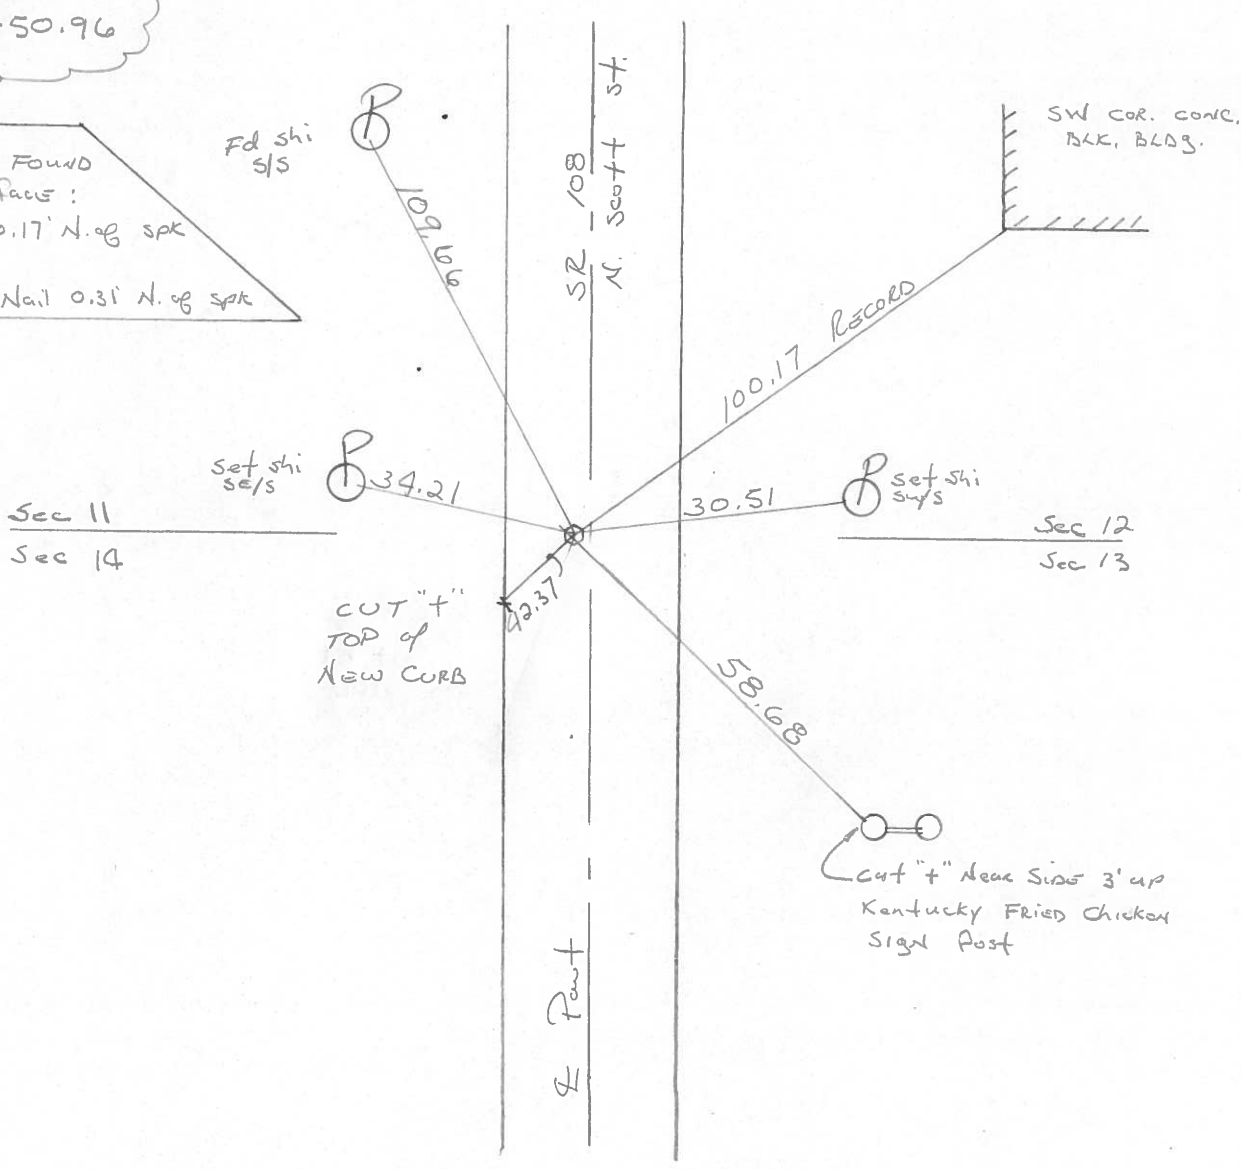 50.96
Fd shi
S/S
FOUND
Face :
0.17' N. of spk
Nail 0.31' N. of spk
109.66
SR 108
N. Scott St.
SW COR. CONC.
BLK. BLDG.
100.17 RECORD
Set shi
SE/S
34.21
30.51
Set shi
SW/S
Sec 11
Sec 14
Sec 12
Sec 13
CUT "+"
TOP of
NEW CURB
42.37
58.68
Cut "+" Near SIDE 3' up
Kentucky FRIED Chicken
SIGN Post
℄ Pavt